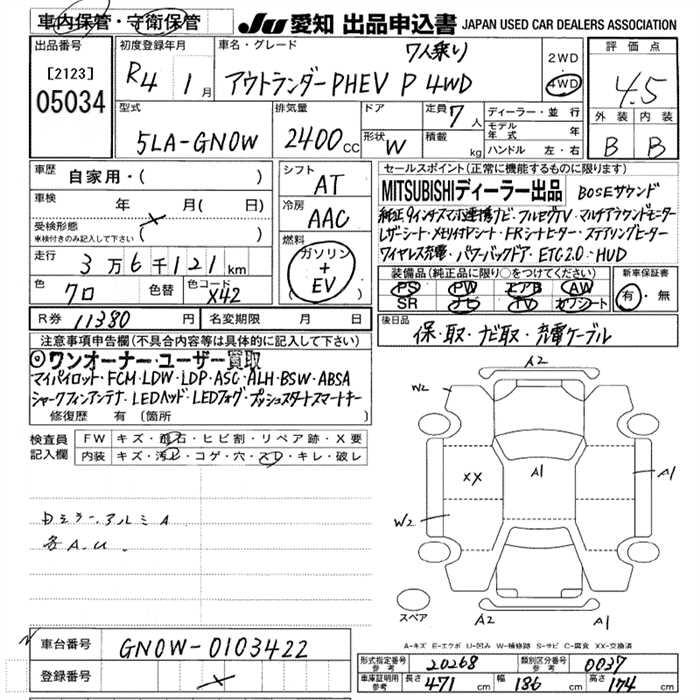 車内保管・守衛保管
JU 愛知 出品申込書 JAPAN USED CAR DEALERS ASSOCIATION
出品番号
[2123]
05034
初度登録年月
R4 1月
車名・グレード
7人乗り
アウトランダーPHEV P 4WD
2WD
4WD
評価点
4.5
外装 内装
B B
型式
5LA-GN0W
排気量
2400cc
ドア
形状 W
定員 7人
積載 kg
ディーラー・並行
モデル年式 年
ハンドル 左・右
車歴
自家用・( )
車検 年 月(日)
受検形態
車検付きのみ記入して下さい ( )
走行 3万6千121km
色 クロ 色替 色コード X42
シフト
AT
冷房
AAC
燃料
ガソリン
+
EV
セールスポイント(正常に機能するものに限ります)
MITSUBISHIディーラー出品 BOSEサウンド
純正9インチスマホ連携ナビ・フルセグTV・マルチアラウンドモニター
レザーシート・メモリイヤシート・FRシートヒーター・ステアリングヒーター
ワイヤレス充電・パワーバックドア・ETC2.0・HUD
装備品(純正品に限り○をつけてください)
PS PW エアB AW
SR ナビ TV カワシート
新車保証書
有・無
R券 11380 円 名変期限 月 日
後日品
保・取・ナビ取・充電ケーブル
注意事項申告欄(不具合内容等は具体的に記入して下さい)
◎ワンオーナー・ユーザー買取
マイパイロット・FCM・LDW・LDP・ASC・ALH・BSW・ABSA
シャークフィンアンテナ・LEDヘッド・LEDフォグ・プッシュスタートスマートキー
修復歴 有 (箇所 )
検査員記入欄
FW キズ・飛石・ヒビ割・リペア跡・X要
内装 キズ・汚レ・コゲ・穴・スレ・キレ・破レ
ドミラー、アルミA
各A.U.
A2
W2
XX
A1
A1
W2
スペア
A2
A1
A-キズ E-エクボ U-凹み W-補修跡 S-サビ C-腐食 XX-交換済
車台番号 GN0W-0103422
登録番号
型式指定番号 参考 20268 類別区分番号 参考 0037
車庫証明用 参考 長さ 471cm 幅 186cm 高さ 174cm